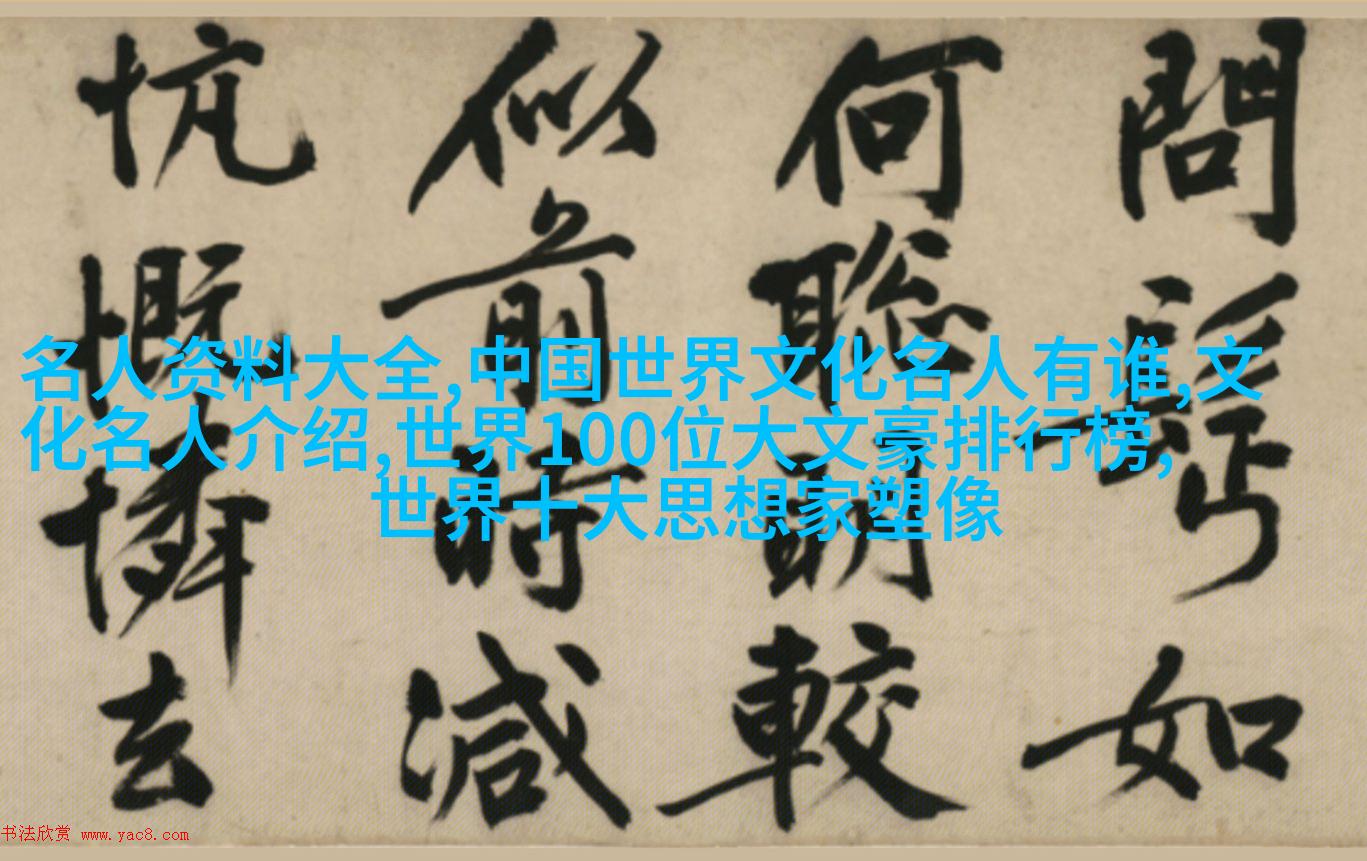 問髩如
何聡明較
似前時減
忼慨憐去
名人资料大全,中国世界文化名人有谁,文
化名人介绍,世界100位大文豪排行榜,
世界十大思想家塑像
书法欣赏 www.yac8.com